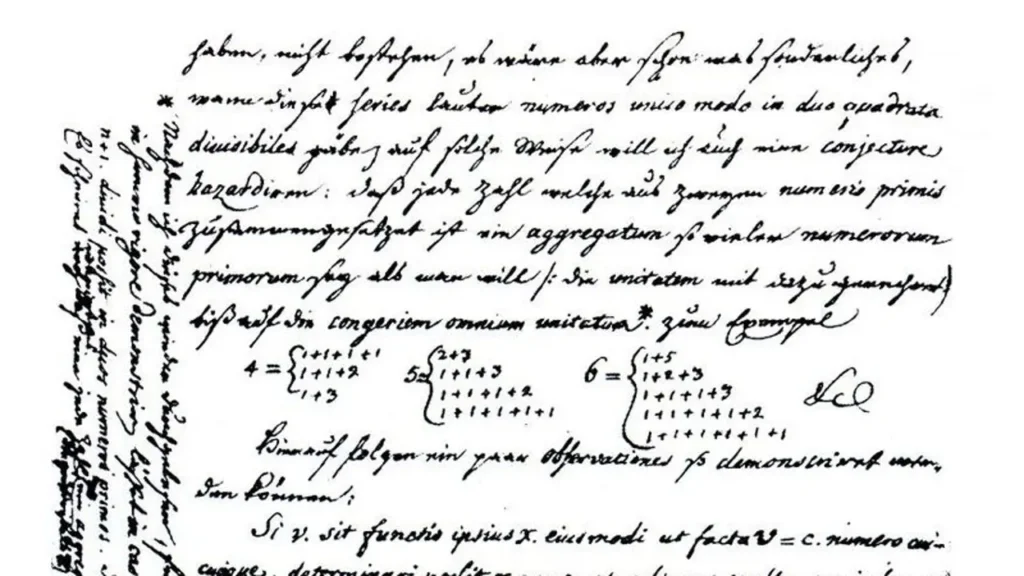 haben, nicht bestehen, es wäre aber schon was sonderliches,
wann diese series lauter numeros unico modo in duo quadrata
divisibiles gäbe; auf solche Weise will ich auch eine conjecture
hazardiren: daß jede Zahl welche aus zweyen numeris primis
zusammengesetzet ist ein aggregatum so vieler numerorum
primorum sey als man will /: die unitatem mit dazu gerechnet
biß auf die congeriem omnium unitatum*. zum Exempel
4 = { 1+1+1+1
1+1+2
1+3
5 = { 2+3
1+1+3
1+1+1+2
1+1+1+1+1
6 = { 1+5
1+2+3
1+1+1+3
1+1+1+1+2
1+1+1+1+1+1
&c
Hierauf folgen ein paar observationes so demonstriret wer-
den können:
Si v. sit functio ipsius x. eiusmodi ut facta v = c. numero cui-
cunque, determinari possit x
* Nachdem ich dieses wieder durchgelesen, f
in summo rigore demonstriren lässet in cas
n+1. dividi possit in duos numeros primos.
Es scheinet daß eine jede Zahl aggreg